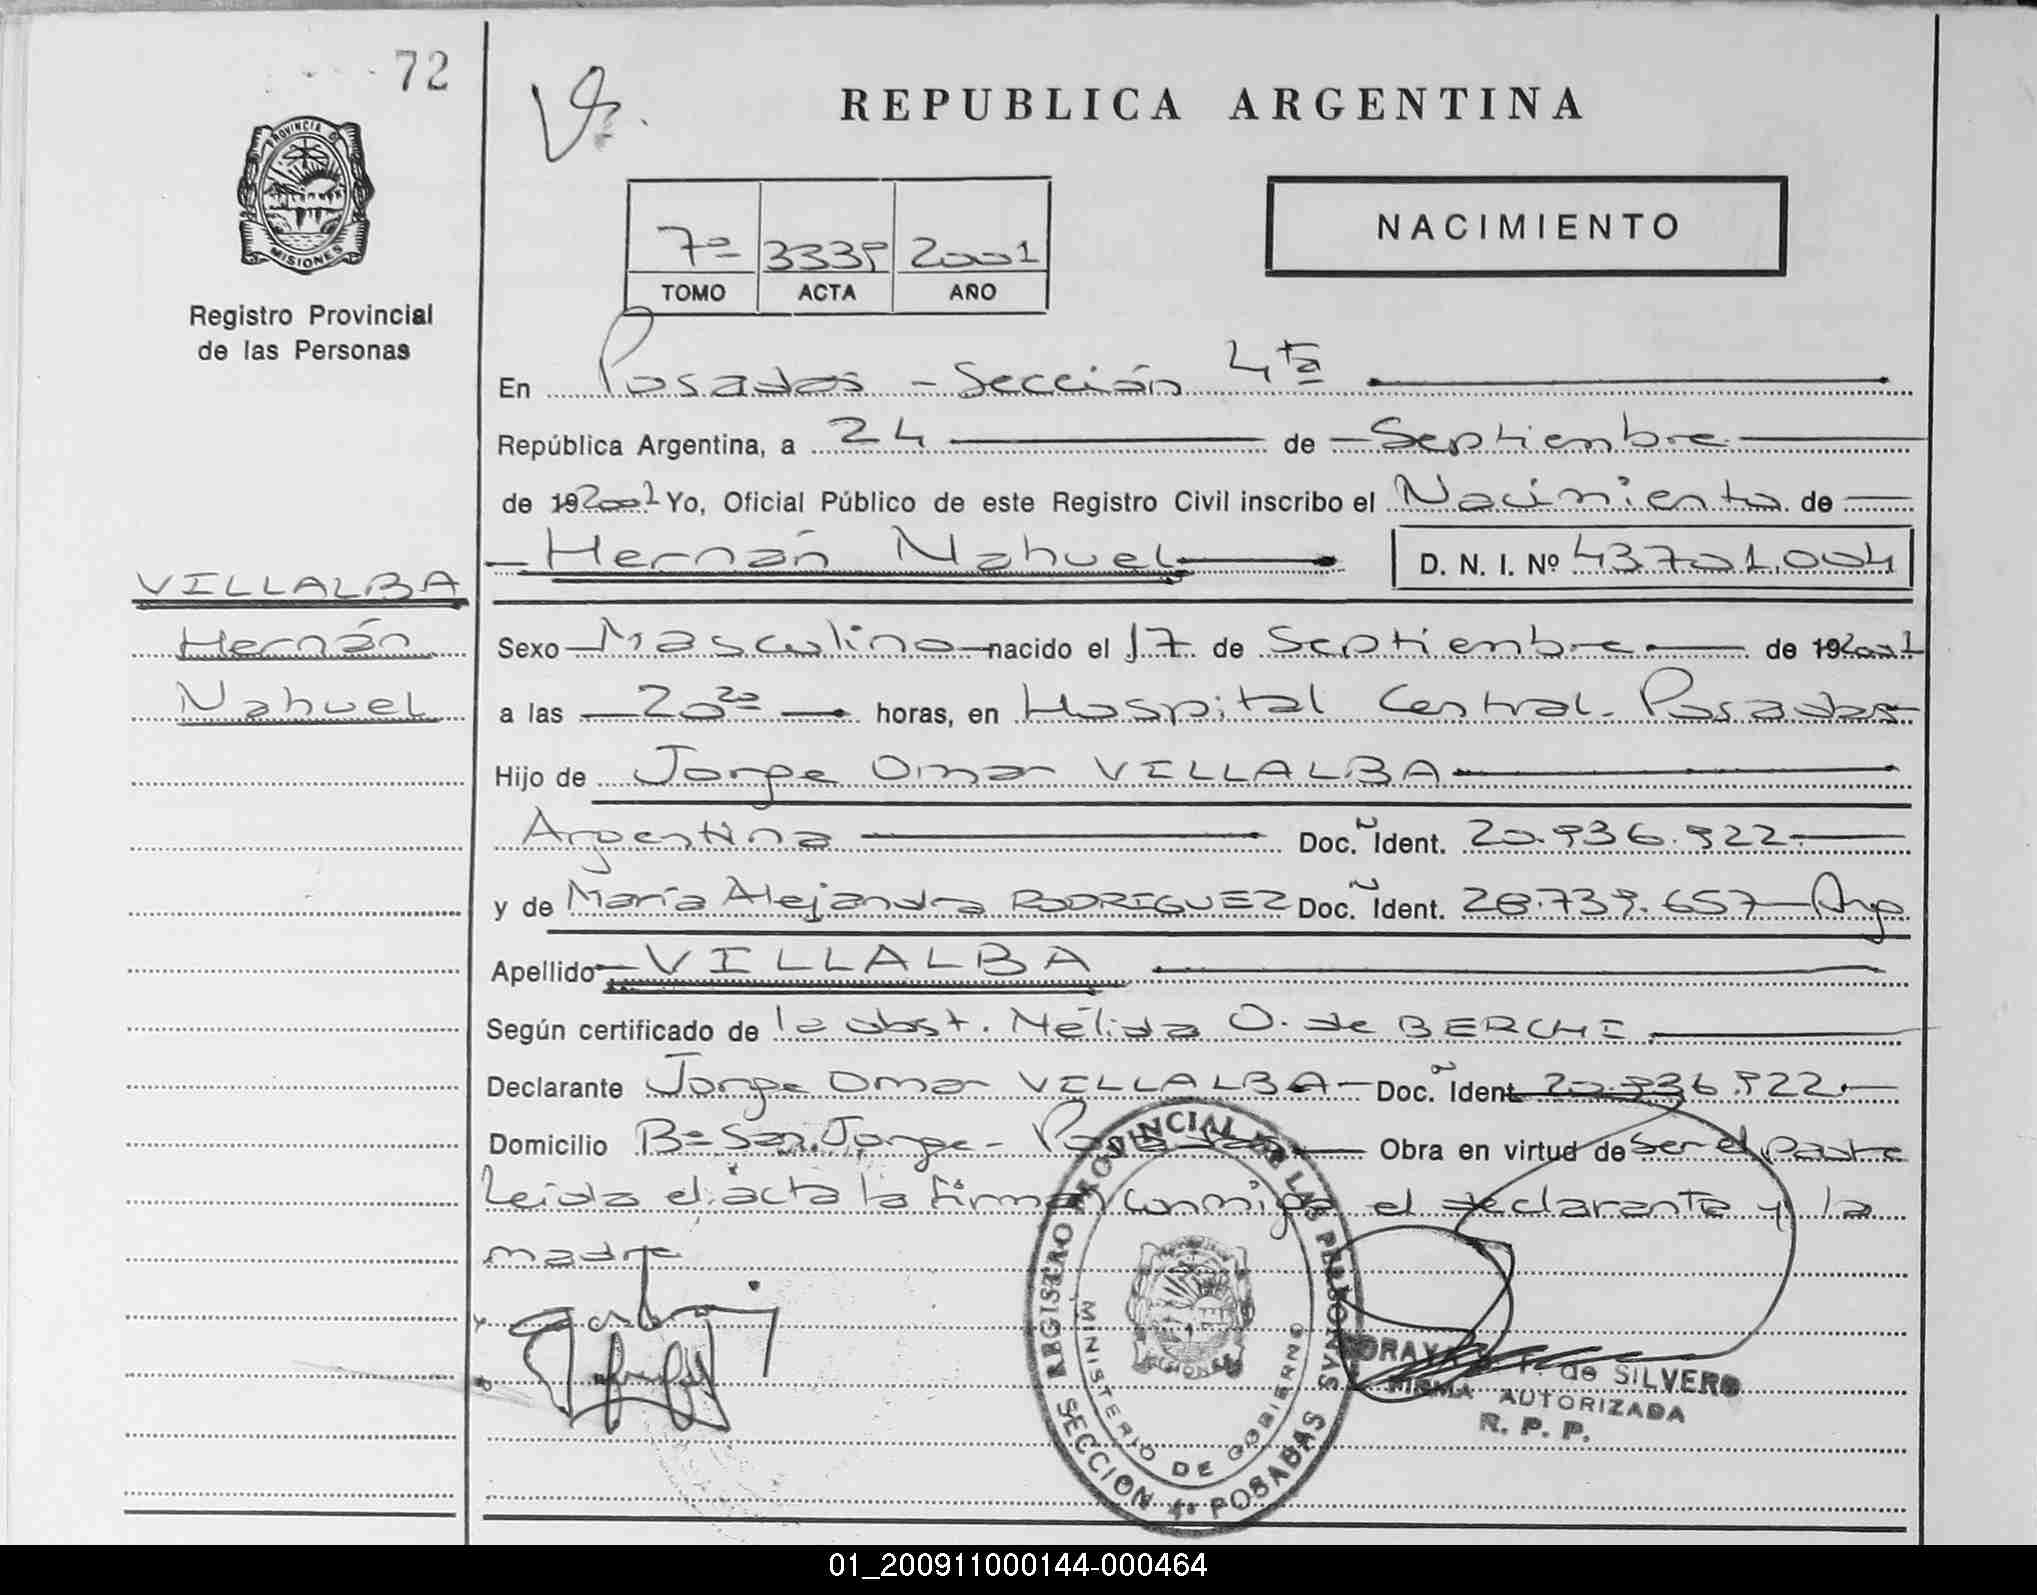 72
REPUBLICA ARGENTINA
PROVINCIA DE
MISIONES
Registro Provincial
de las Personas
7º 3339 2001
TOMO ACTA AÑO
NACIMIENTO
En Posadas - Sección 4ta
República Argentina, a 24 de Septiembre
de 19 2001 Yo, Oficial Público de este Registro Civil inscribo el Nacimiento de
Hernán Nahuel D. N. I. Nº 43.701.004
VILLALBA
Hernán
Nahuel
Sexo Masculino nacido el 17 de Septiembre de 19 2001
a las 20 20 horas, en Hospital Central - Posadas
Hijo de Jorge Omar VILLALBA
Argentina Doc. N Ident. 20.936.922
y de María Alejandra RODRIGUEZ Doc. N Ident. 28.739.657 - Arg
Apellido VILLALBA
Según certificado de la obst. Nélida O. de BERCHI
Declarante Jorge Omar VILLALBA - Doc. Ident. 20.936.922
Domicilio Bº San Jorge - Posadas Obra en virtud de ser el padre
Leída el acta la firman conmigo el declarante y la
madre
REGISTRO PROVINCIAL DE LAS PERSONAS
MINISTERIO DE GOBIERNO
MISIONES
SECCION 4º POSADAS
de SILVERO
FIRMA AUTORIZADA
R. P. P.
01_200911000144-000464